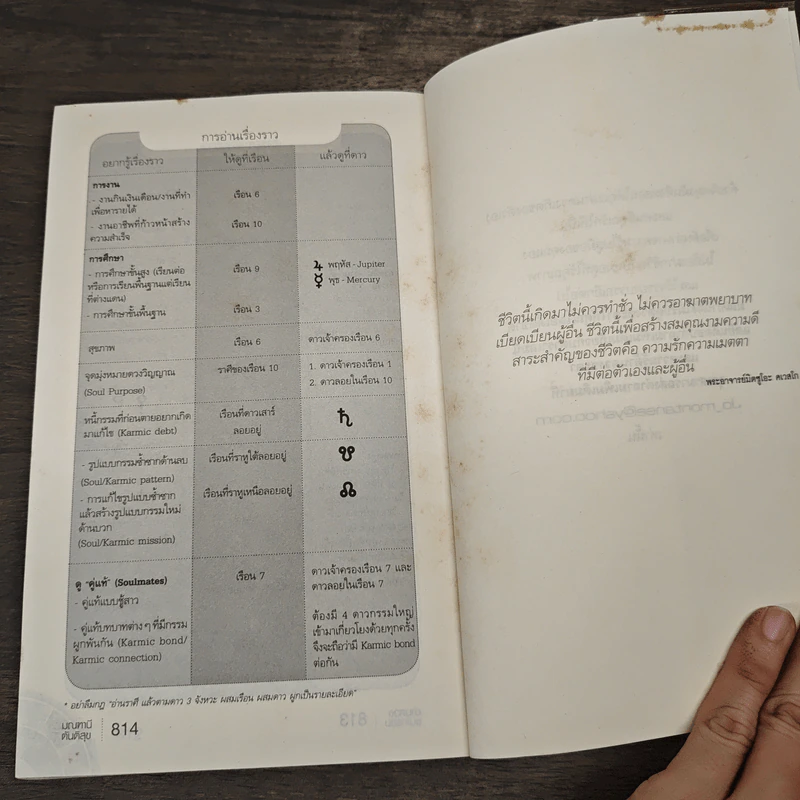 การอ่านเรื่องราว
อยากรู้เรื่องราว ให้ดูที่เรือน แล้วดูที่ดาว
การงาน
- งานกินเงินเดือน/งานที่ทำ เรือน 6
เพื่อหารายได้
- งานอาชีพที่ก้าวหน้าสร้าง เรือน 10
ความสำเร็จ
การศึกษา
- การศึกษาชั้นสูง (เรียนต่อ เรือน 9 ♃ พฤหัส - Jupiter
หรือการเรียนพื้นฐานแต่เรียน ☿ พุธ - Mercury
ที่ต่างแดน)
- การศึกษาขั้นพื้นฐาน เรือน 3
สุขภาพ เรือน 6 ดาวเจ้าครองเรือน 6
จุดมุ่งหมายดวงวิญญาณ ราศีของเรือน 10 1. ดาวเจ้าครองเรือน 1
(Soul Purpose) 2. ดาวลอยในเรือน 10
หนี้กรรมที่ก่อนตายอยากเกิด เรือนที่ดาวเสาร์ ♄
มาแก้ไข (Karmic debt) ลอยอยู่
- รูปแบบกรรมซ้ำซากด้านลบ เรือนที่ราหูใต้ลอยอยู่ ☋
(Soul/Karmic pattern)
- การแก้ไขรูปแบบซ้ำซาก เรือนที่ราหูเหนือลอยอยู่ ☊
แล้วสร้างรูปแบบกรรมใหม่
ด้านบวก
(Soul/Karmic mission)
ดู "คู่แท้" (Soulmates) เรือน 7 ดาวเจ้าครองเรือน 7 และ
- คู่แท้แบบชู้สาว ดาวลอยในเรือน 7
- คู่แท้บทบาทต่าง ๆ ที่มีกรรม ต้องมี 4 ดาวกรรมใหญ่
ผูกพันกัน (Karmic bond/ เข้ามาเกี่ยวโยงด้วยทุกครั้ง
Karmic connection) จึงจะถือว่ามี Karmic bond
ต่อกัน
* อย่าลืมกฎ "อ่านราศี แล้วตามดาว 3 จังหวะ ผสมเรือน ผสมดาว ผูกเป็นรายละเอียด"
มณฑานี
ตันติสุข 814
ชีวิตนี้เกิดมาไม่ควรทำชั่ว ไม่ควรอาฆาตพยาบาท
เบียดเบียนผู้อื่น ชีวิตนี้เพื่อสร้างสมคุณงามความดี
สาระสำคัญของชีวิตคือ ความรักความเมตตา
ที่มีต่อตัวเองและผู้อื่น
พระอาจารย์มิตซูโอะ คเวสโก